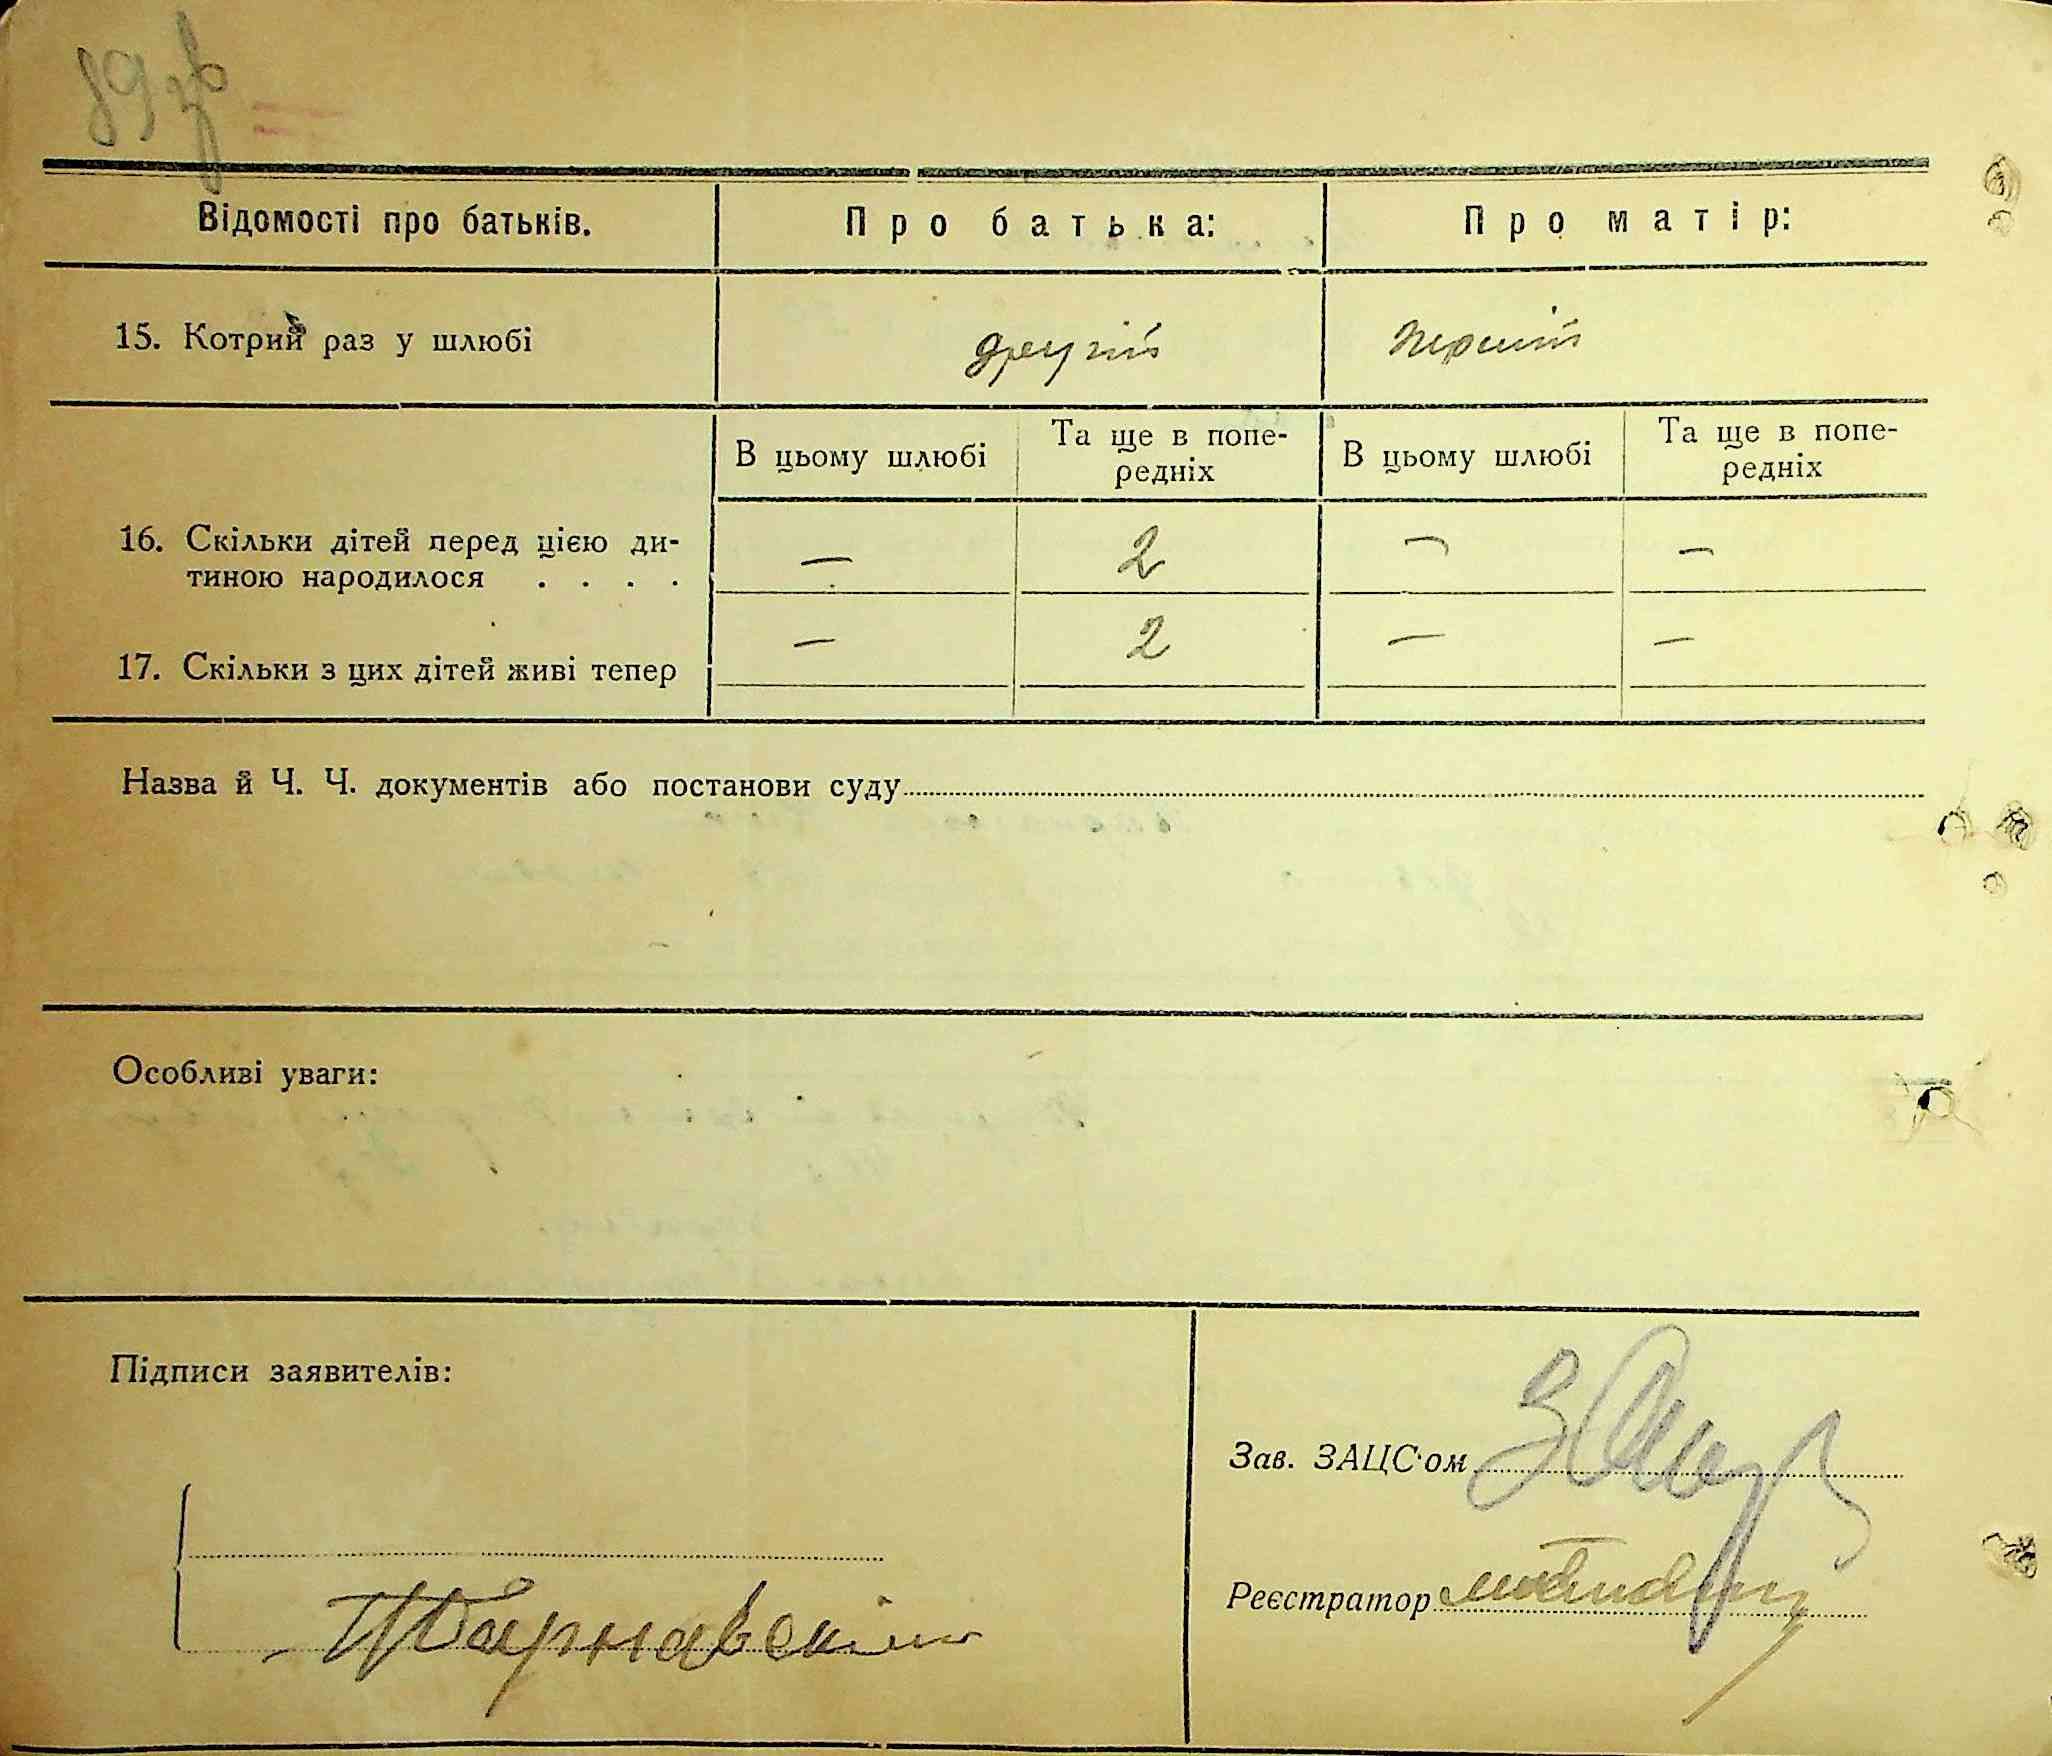 89 зв
Відомості про батьків. Про батька: Про матір:
15. Котрий раз у шлюбі другій перший
В цьому шлюбі Та ще в попе- В цьому шлюбі Та ще в попе-
редніх редніх
16. Скільки дітей перед цією ди- — 2 — —
тиною народилося . . . .
17. Скільки з цих дітей живі тепер — 2 — —
Назва й Ч. Ч. документів або постанови суду
Особливі уваги:
Підписи заявителів:
Зав. ЗАЦС'ом
Реєстратор